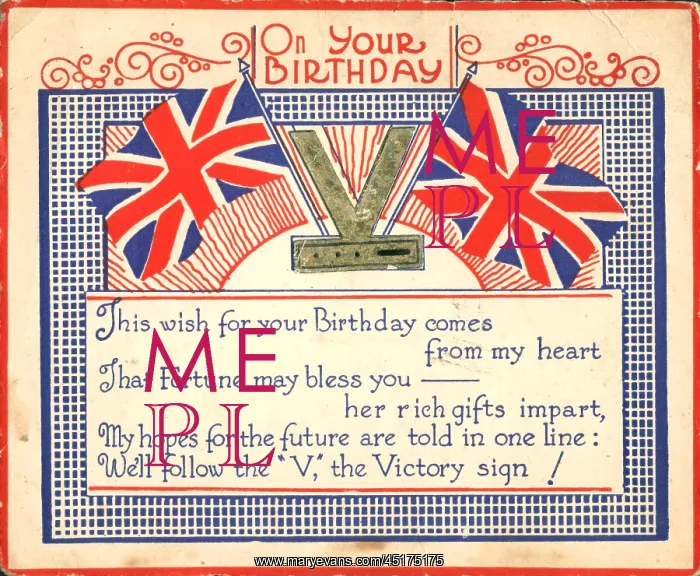 On YOUR
BIRTHDAY
V
This wish for your Birthday comes
from my heart
That Fortune may bless you —
her rich gifts impart,
My hopes for the future are told in one line:
We'll follow the "V," the Victory sign !
ME
PL
ME
PL
www.maryevans.com/45175175